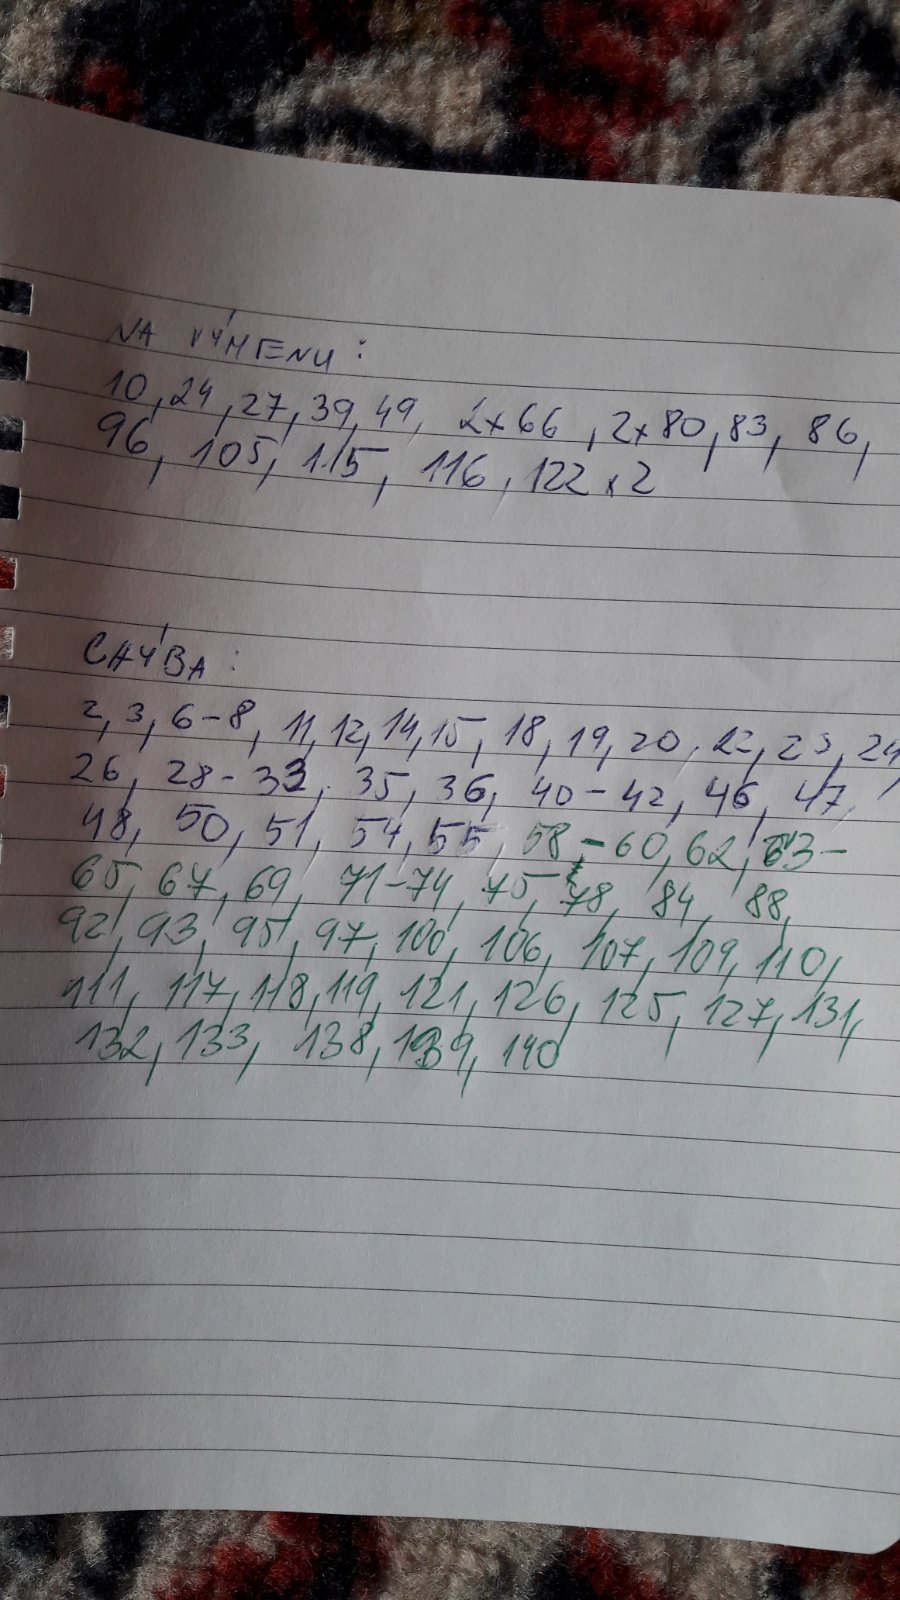 NA VÝMENU:
10, 24, 27, 39, 49, 2x66, 2x80, 83, 86,
96, 105, 115, 116, 122 x 2
CHÝBA:
2, 3, 6-8, 11, 12, 14, 15, 18, 19, 20, 22, 23, 24,
26, 28-33, 35, 36, 40-42, 46, 47,
48, 50, 51, 54, 55, 58-60, 62, 63-
65, 67, 69, 71-74, 75, 78, 84, 88,
92, 93, 95, 97, 100, 106, 107, 109, 110,
111, 117, 118, 119, 121, 126, 125, 127, 131,
132, 133, 138, 139, 140